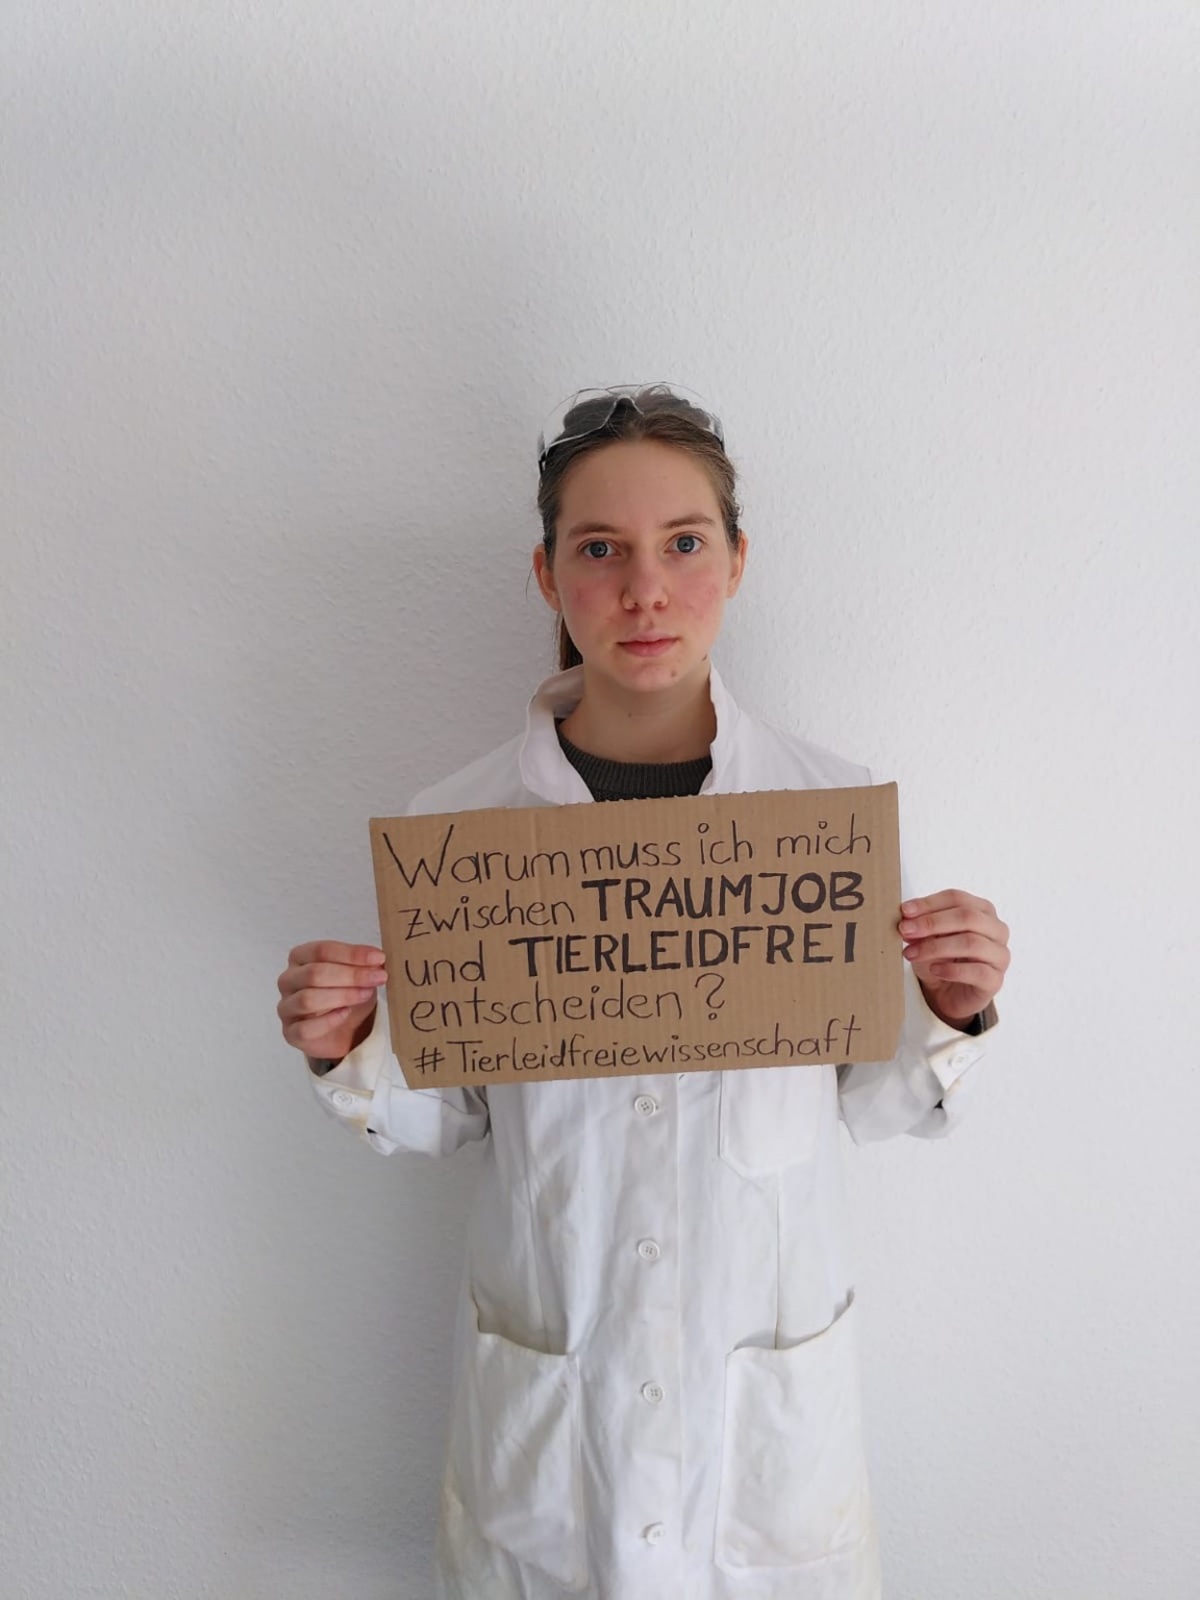 Warum muss ich mich
zwischen TRAUMJOB
und TIERLEIDFREI
entscheiden?
#Tierleidfreiewissenschaft